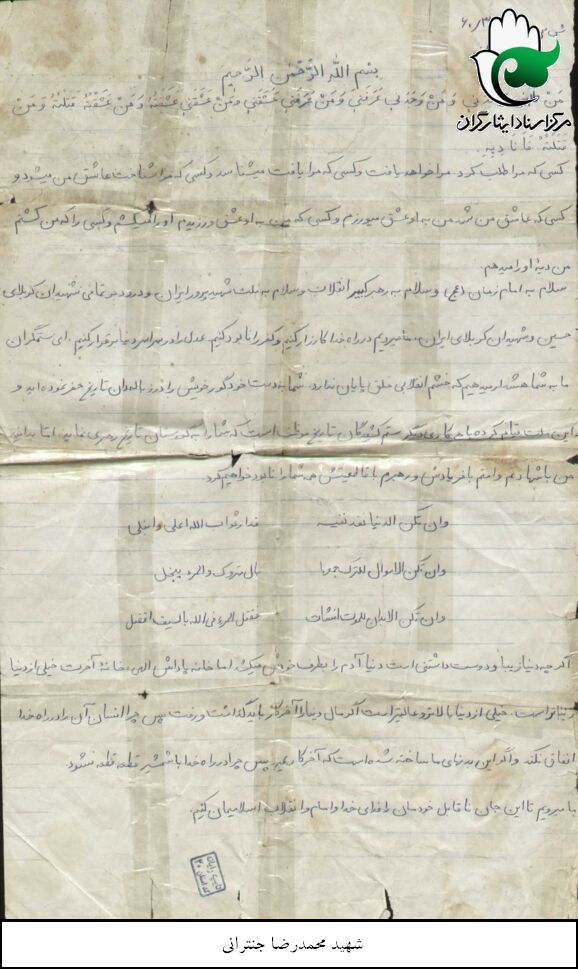 ۶۰/۳
مرکز اسناد ایثارگران
بسم الله الرَّحْمنِ الرَّحیمِ
مَنْ وَجَدَنی وَ مَنْ وَجَدَنی عَرَفَنی وَ مَنْ عَرَفَنی عَشَقَنی وَ مَنْ عَشَقَنی عَشَقْتُهُ وَ مَنْ عَشَقْتُهُ قَتَلْتُهُ وَ مَنْ
قَتَلْتُهُ فَاَنَا دِیَتِه .
کسی که مرا طلب کرد، مرا خواهد یافت و کسی که مرا یافت میشناسد و کسی که مرا شناخت عاشق من میشود و
کسی که عاشق من شد من به او عشق میورزم و کسی که من به او عشق ورزیدم او را میکشم و کسی را که من کشتم
من دیهٔ او را میدهم.
سلام به امام زمان (عج) و سلام به رهبر کبیر انقلاب و سلام به ملت شهیدپرور ایران و درود بر تمامی شهیدان کربلای
حسین و شهیدان کربلای ایران، ما میرویم در راه خدا کارزار کنیم و کفر را نابود کنیم. عدل را در سراسر دنیا برقرار کنیم. ای ستمگران
ما به شما هشدار میدهیم که خشم انقلابی خلق پایان ندارد. شما به دست خود گور خویش را در زباله‌دان تاریخ حفر نموده اید و
این ملت قیام کرده با همکاری دیگر ستم کشیدگان تاریخ موظف است که شما را به گورستان تاریخ رهبری نماید. اما بدانید
من با شهادتم و امامم با فریادش و رهبرم با قاطعیتش شما را نابود خواهیم کرد.
وان تکن الدنیا تعد نفیسه فدار ثواب الله اعلی و انبلی
وان تکن الاموال للترک جمعها بال متروک والمرء یبخل
وان تکن الابدان للموت انشات فقتل المرء فی الله بالسیف افضل
اگر چه دنیا زیبا و دوست داشتنی است دنیا آدم را بطرف خودش میکشد اما خانه پاداش الهی، خانه آخرت خیلی از دنیا
زیباتر است. خیلی از دنیا بالاتر و عالیتر است اگر مال دنیا را آخر کار باید گذاشت و رفت پس چرا انسان آن را در راه خدا
انفاق نکند و اگر این بدنهای ما ساخته شده است که آخر کار بمیرد پس چرا در راه خدا با شمشیر قطعه قطعه نشود.
ما میرویم تا این جان ناقابل خودمان را فدای خدا و امام و انقلاب اسلامیمان کنیم.
شهید محمدرضا جنترانی